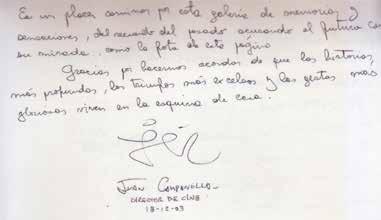 Es un placer caminar por esta galería de memorias y
sensaciones, del recuerdo del pasado acunando el futuro con
su mirada... como la foto de esta página
Gracias por hacernos acordar de que las historias
más profundas, los triunfos más excelsos y las gestas más
gloriosas viven en la esquina de casa.
Juan Campanella
DIRECTOR DE CINE
18-12-03